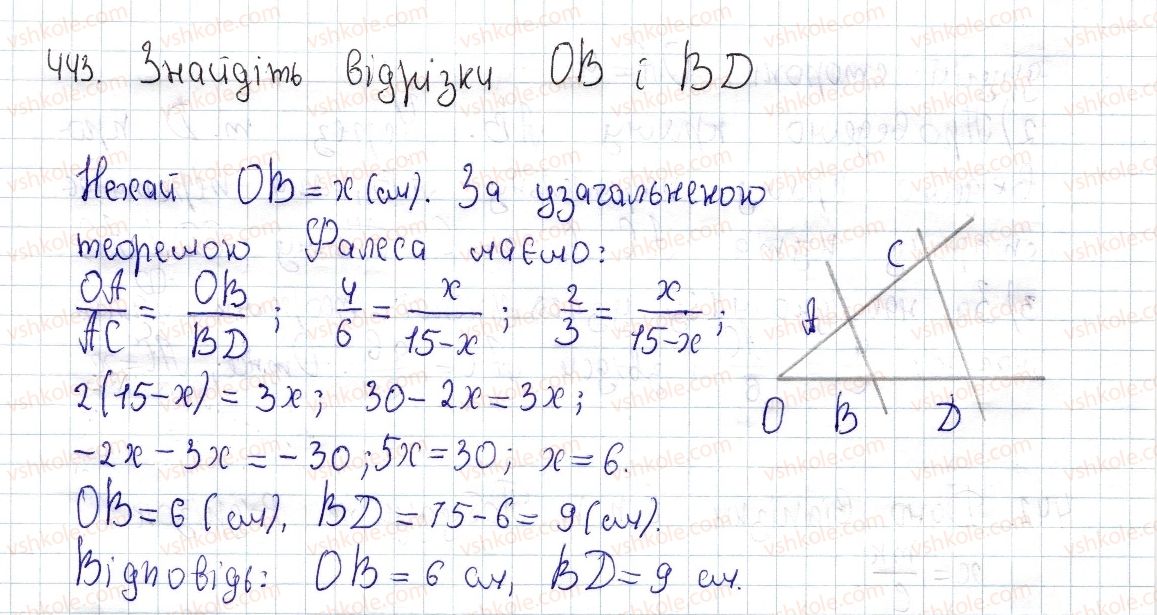 443. Знайдіть відрізки OB і BD
Нехай OB = x (см). За узагальненою
теоремою Фалеса маємо:
OA/AC = OB/BD; 4/6 = x/15-x; 2/3 = x/15-x;
2(15-x) = 3x; 30-2x=3x;
-2x-3x=-30; 5x=30; x=6.
OB=6 (см), BD=15-6=9(см).
Відповідь: OB=6 см, BD=9 см.
C
A
O B D
vshkole.com